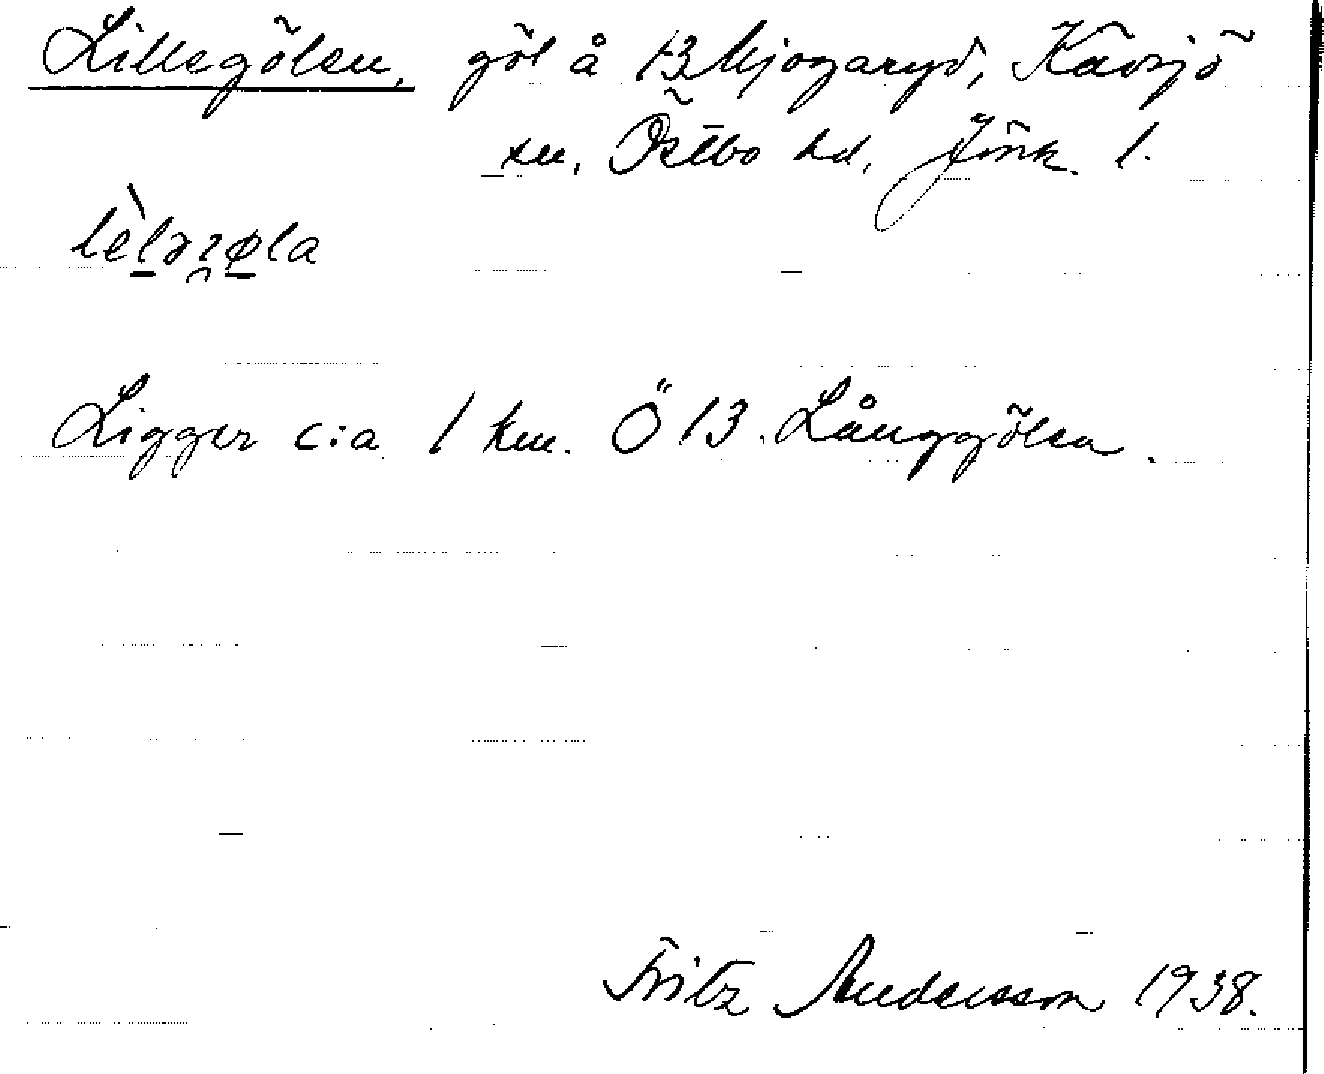 Lillegölen, göl å 13 Mjogaryd, Kävsjö
sn. Östbo hd, Jönk. l.
Ligger c:a 1 km. Ö 13. Långgölen.
Fritz Andersson 1938.